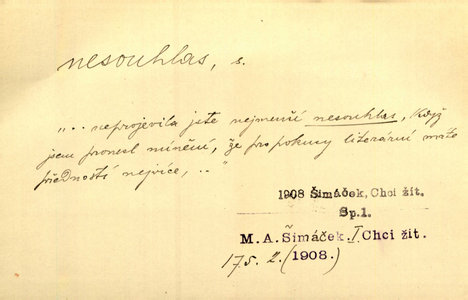 nesouhlas, s.
„... neprojevila jste nejmenší nesouhlas, když
jsem pronesl mínění, že pro pokusy literární máte
předností nejvíce, ..."
1908 Šimáček, Chci žít.
Sp.1.
M.A.Šimáček. I Chci žít.
175. 2. (1908.)